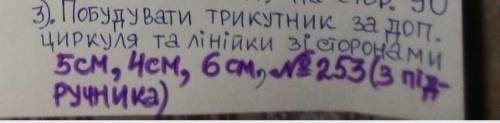 3). Побудувати трикутник за доп.
циркуля та лінійки зі сторонами
5см, 4см, 6см, №253(з під-
ручника)